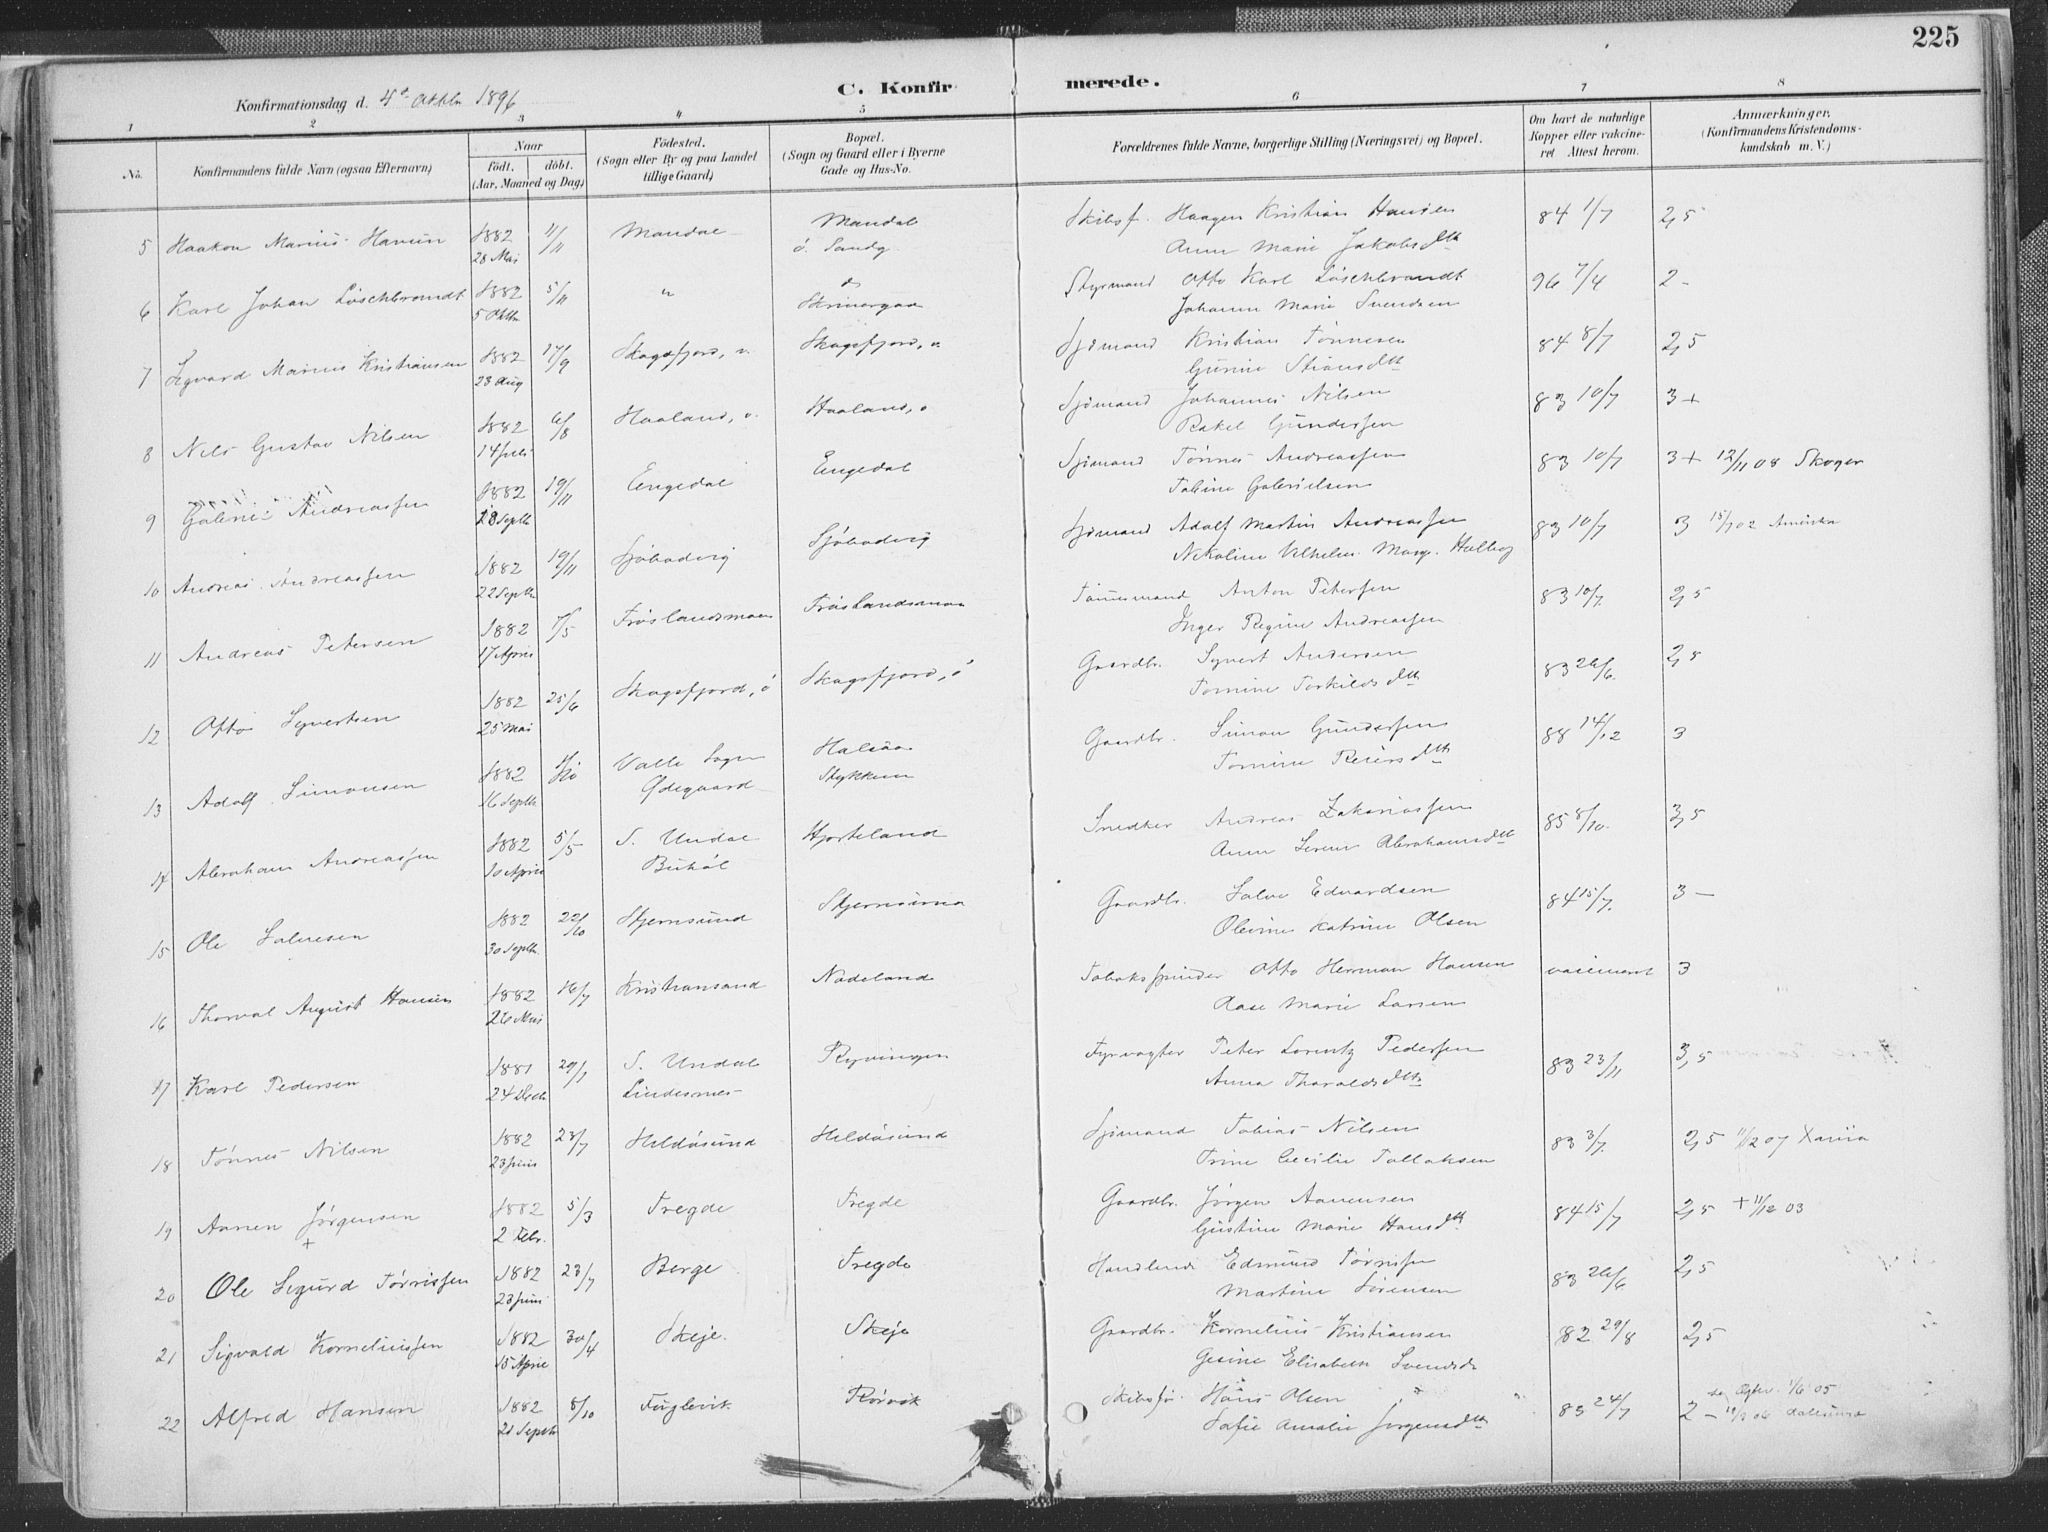 225
C. Konfirmerede.
Konfirmationsdag d. 4de Oktbr 1896
1 2 3 4 5 6 7 8
No.
Konfirmandens fulde Navn (ogsaa Efternavn)
Naar
Födt. döbt.
(Aar, Maaned og Dag)
Födested.
(Sogn eller By og paa Landet
tillige Gaard)
Bopæl.
(Sogn og Gaard eller i Byerne
Gade og Hus-No.
Forældrenes fulde Navne, borgerlige Stilling (Næringsvei) og Bopæl.
Om havt de naturlige
Kopper eller vakcine-
ret Attest herom.
Anmærkninger.
(Konfirmandens Kristendoms-
kundskab m. V.)
5 Haakon Marius Hansen 1882 11/11 Mandal Mandal Skibsf. Haagen Kristian Hansen 84 1/7 2,5
28 Mai ö. Sandg. Anne Marie Jakobsdtt
6 Karl Johan Löschbrandt 1882 5/11 " do Styrmand Otto Karl Löschbrandt 96 7/4 2-
5 Oktbr Skrivergaa Johanne Marie Svendsen
7 Sigvard Marius Kristiansen 1882 17/9 Skagefjord, v. Skagefjord, v. Sjömand Kristian Tönnesen 84 8/7 2,5
23 Aug Gunine Stiansdtt
8 Nils Gustav Nilsen 1882 6/8 Haaland, ö. Haaland, ö Sjömand Johannes Nilsen 83 10/7 3+
14 Juli Rakel Gundersen
9 Andreassen 1882 19/11 Engedal Engedal Sjömand Tönnes Andreassen 83 10/7 3+ 12/11 08 Skoger
28 Septbr Tabine Gabrielsen
10 Andreas Andreassen 1882 19/11 Sjöbodvig Sjöbodvig Sjömand Adolf Martin Andreassen 83 10/7 3 15/7 02 Amerika
22 Septbr Nikoline Vilhelm. Marg.
11 Andreas Petersen 1882 7/5 Fröslandsmoen Fröslandsmoen Tömmermand Anton Petersen 83 10/7 2,5
17 April Inger Regine Andreassen
12 Otto Syvertsen 1882 25/6 Skagefjord, ö Skagefjord, ö Gaardbr. Syvert Andersen 83 26/6. 2,5
25 Mai Tomine Torkildsdtt
13 Adolf Simonsen 1882 Valle Sogn Halsaa Gaardbr. Simon Gundersen 88 14/12 3
16 Septbr. Ödegaard Stykkene Tomine Reiersdtt
14 Abraham Andreassen 1882 5/5 S. Undal Hjorteland Snedker Andreas Zakariassen 85 8/10. 3,5
10 April Buhöl Anne Serine Abrahamsdtt
15 Ole Salvesen 1882 22/10 Stjernsund Stjernsund Gaardbr. Salve Edvardsen 84 15/7. 3-
30 Septbr. Olevine Katrine Olsen
16 Thorval August Hansen 1882 16/7 Kristiansand Nodeland Tobakspinder Otto Herman Hansen 3
26 Mai Aase Marie Larsen
17 Karl Pedersen 1881 29/1 S. Undal Ryvingen Fyrvogter Peter Lorentz Pedersen 83 23/11 3,5
24 Decb Lindesnes Anna Tharaldsdtt
18 Tönnes Nilsen 1882 23/7 Hildösund Hildösund Sjömand Tobias Nilsen 83 3/7. 2,5 11/2 07 Xania
23 Juni Trine Cecilie Tallaksen
19 Aanen Jörgensen 1882 5/3 Tregde Tregde Gaardbr. Jörgen Aanensen 84 15/7 2,5 + 11/12 03
+ 2 Febr. Gustine Marie Hansdtt
20 Ole Sigurd Törrissen 1882 23/7 Berge Tregde Handlende Edmund Törrissen 83 26/6 2,5
23 Juni Martine Sörensen
21 Sigvald Korneliussen 1882 30/4 Skeje. Skeje Gaardbr. Kornelius Kristiansen 82 29/8 2,5
15 April Gesine Elisabeth Svendsd
22 Alfred Hansen 1882 8/10 Fuglevik Rörvik Skibsför. Hans Olsen 83 24/7 2-
21 Septbr Sofie Amalie Jörgensdtt